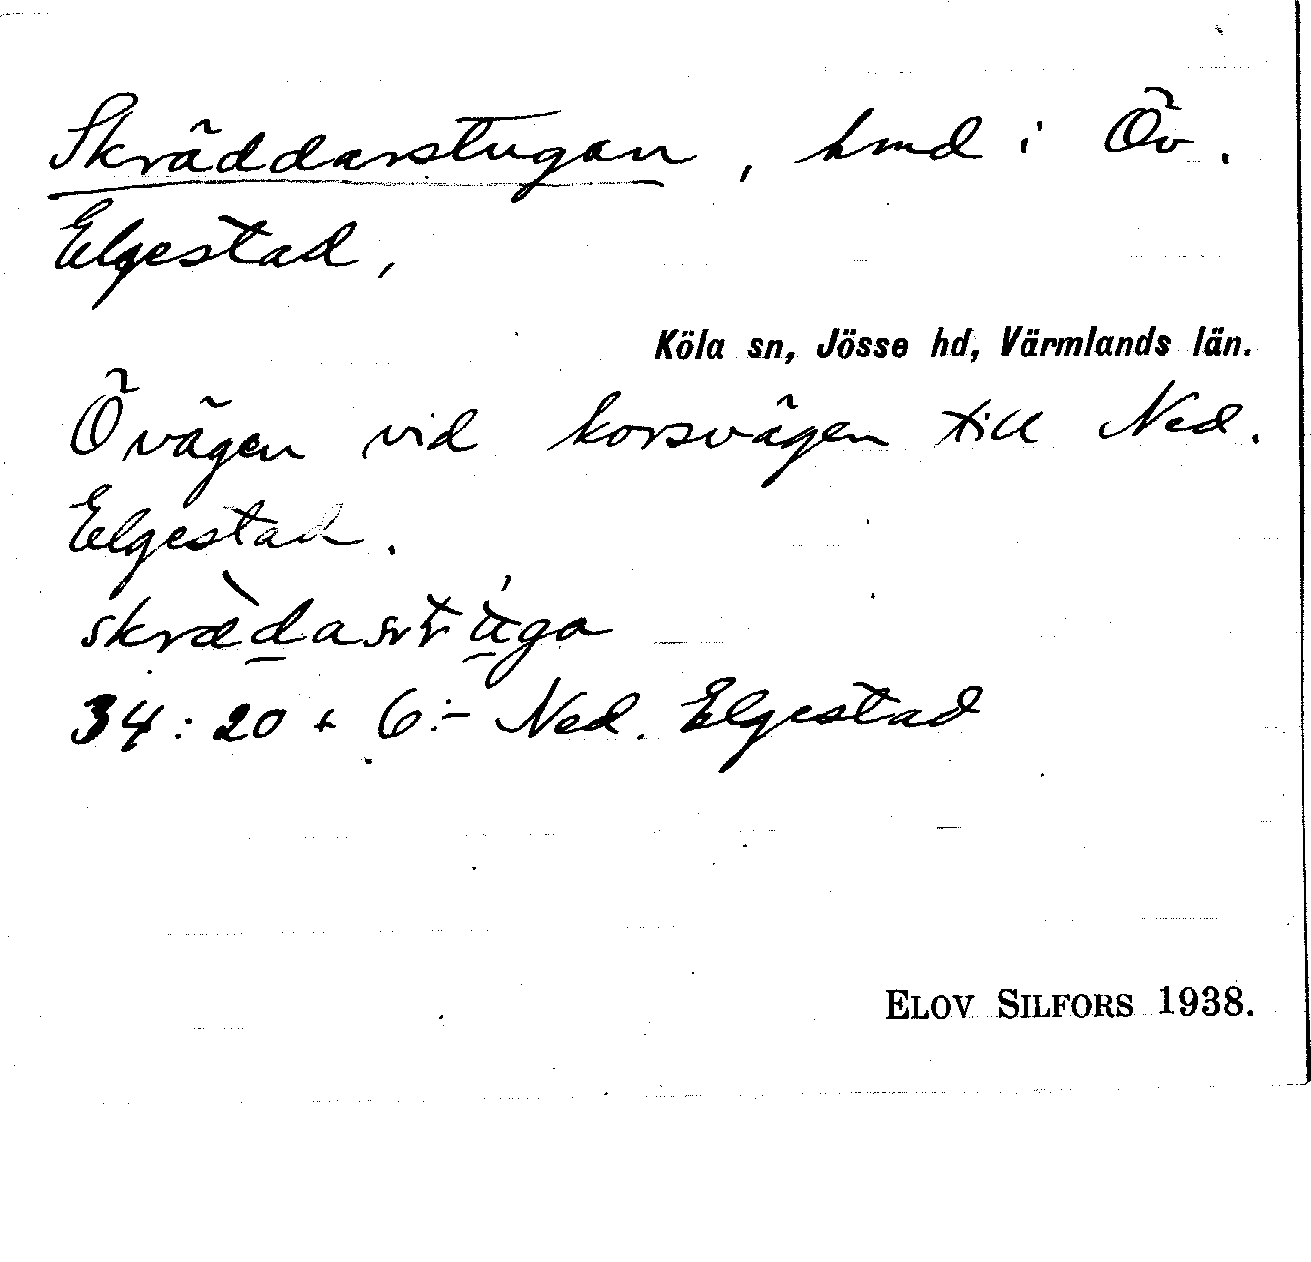 Skräddarstugan, hmd i Öv.
Elgestad,
Köla sn, Jösse hd, Värmlands län.
Ö vägen vid korsvägen till Ned.
Elgestad.
34:20 + 6:- Ned. Elgestad
ELOV SILFORS 1938.